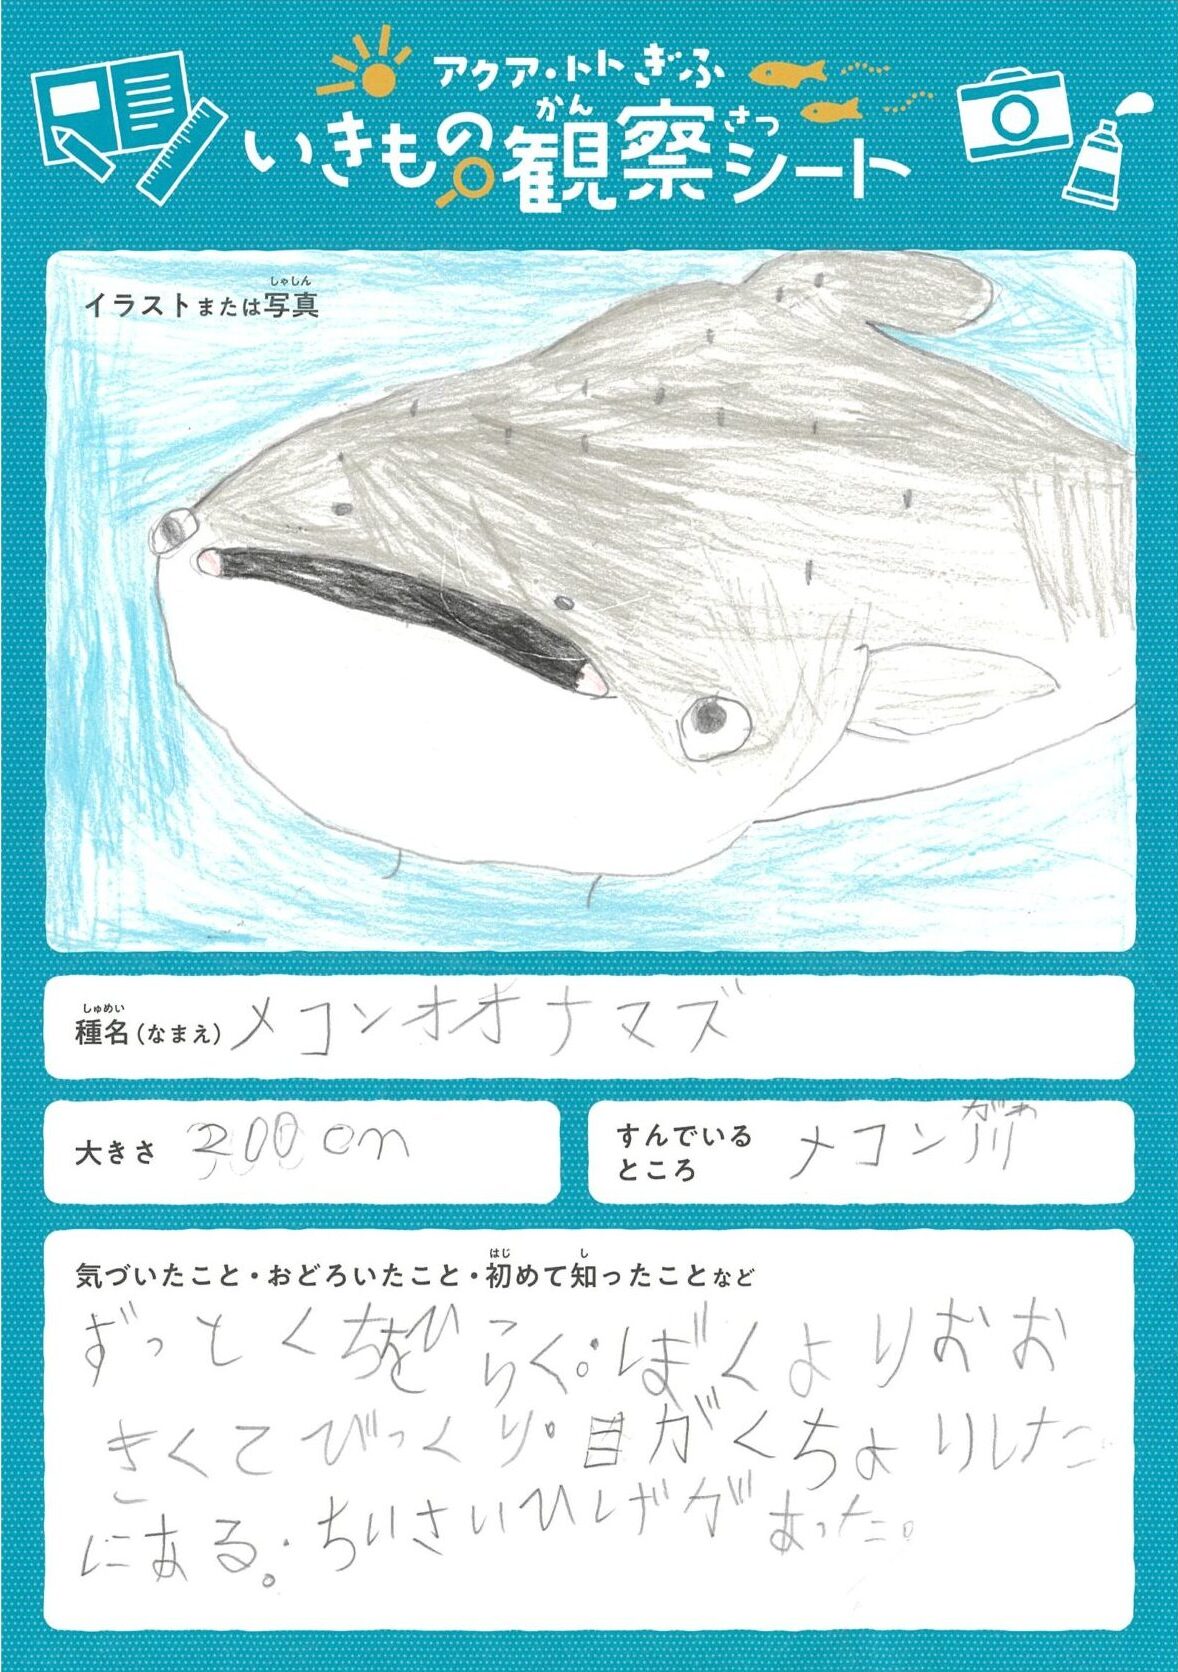 アクア・トトぎふ
いきもの観察シート
かん
さつ
イラストまたは写真
しゃしん
種名(なまえ)メコンオオナマズ
しゅめい
大きさ 200cm
すんでいる
ところ
メコン川
がわ
気づいたこと・おどろいたこと・初めて知ったことなど
はじ
し
ずっとくちをひらく。ぼくよりおお
きくてびっくり。目がくちよりした
にある。ちいさいひげがあった。